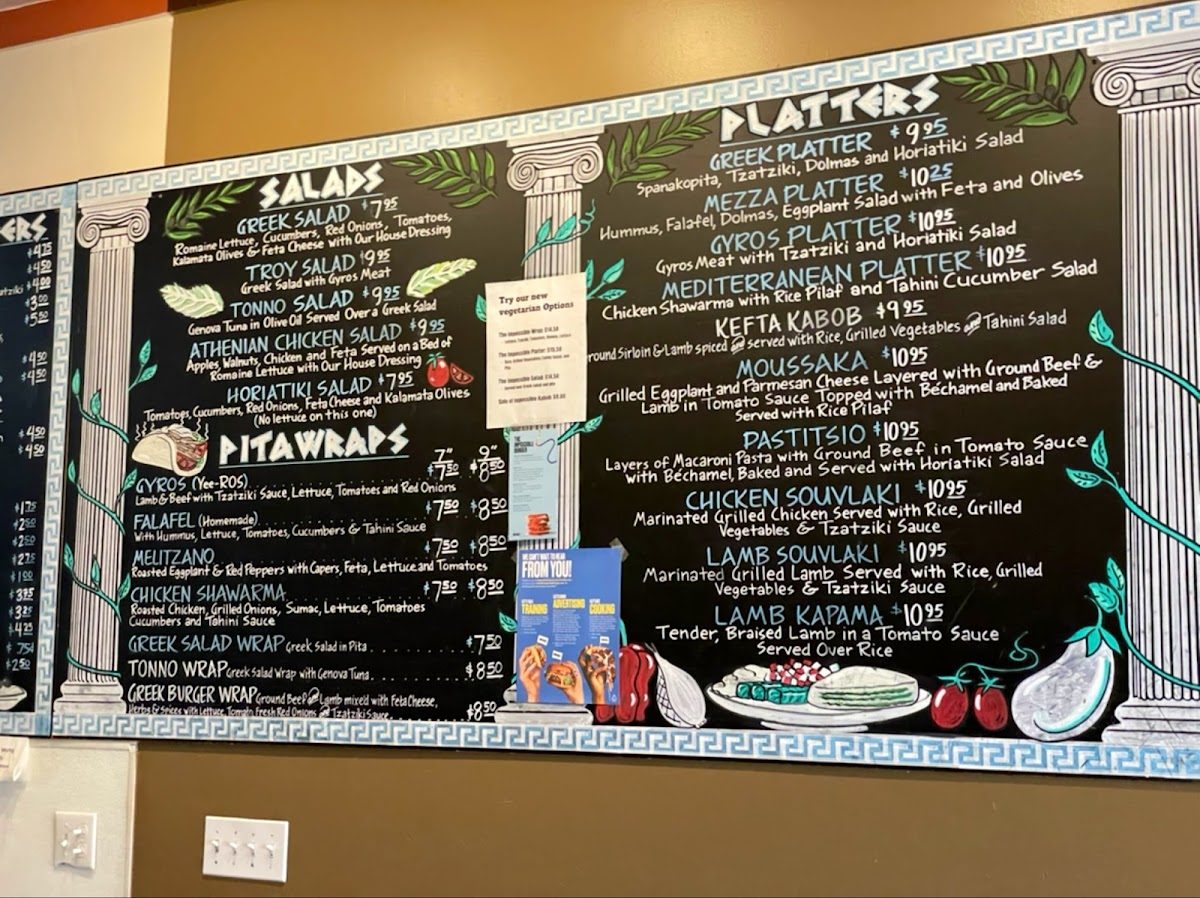 ERS
$4.75
$4.50
$4.00
$3.00
$5.50
$4.50
$4.50
$4.50
$4.50
$1.75
$2.50
$2.50
$2.75
$1.00
$3.25
$4.25
.75¢
$2.50
SALADS
GREEK SALAD $7.95
Romaine Lettuce, Cucumbers, Red Onions, Tomatoes,
Kalamata Olives & Feta Cheese with Our House Dressing
TROY SALAD $9.95
Greek Salad with Gyros Meat
TONNO SALAD $9.95
Genova Tuna in Olive Oil Served Over a Greek Salad
ATHENIAN CHICKEN SALAD $9.95
Apples, Walnuts, Chicken and Feta Served on a Bed of
Romaine Lettuce with Our House Dressing
HORIATIKI SALAD $7.95
Tomatoes, Cucumbers, Red Onions, Feta Cheese and Kalamata Olives
(No lettuce on this one)
PITAWRAPS
7" 9"
GYROS (Yee-ROS) $7.50 $8.50
Lamb & Beef with Tzatziki Sauce, Lettuce, Tomatoes and Red Onions
FALAFEL (Homemade) $7.50 $8.50
With Hummus, Lettuce, Tomatoes, Cucumbers & Tahini Sauce
MELITZANO $7.50 $8.50
Roasted Eggplant & Red Peppers with Capers, Feta, Lettuce and Tomatoes
CHICKEN SHAWARMA $7.50 $8.50
Roasted Chicken, Grilled Onions, Sumac, Lettuce, Tomatoes
Cucumbers and Tahini Sauce
GREEK SALAD WRAP Greek Salad in Pita $7.50
TONNO WRAP Greek Salad Wrap with Genova Tuna $8.50
GREEK BURGER WRAP Ground Beef and Lamb mixed with Feta Cheese,
Herbs & Spices with Lettuce, Tomato, Fresh Red Onions and Tzatziki Sauce $8.50
Try our new
vegetarian Options
The Impossible Wrap
The Impossible Platter
The Impossible Salad
Side of Impossible Kabob
WE CAN'T WAIT TO HEAR
FROM YOU!
TRAINING
ADVERTISING
COOKING
PLATTERS
GREEK PLATTER $9.95
Spanakopita, Tzatziki, Dolmas and Horiatiki Salad
MEZZA PLATTER $10.25
Hummus, Falafel, Dolmas, Eggplant Salad with Feta and Olives
GYROS PLATTER $10.95
Gyros Meat with Tzatziki and Horiatiki Salad
MEDITERRANEAN PLATTER $10.95
Chicken Shawarma with Rice Pilaf and Tahini Cucumber Salad
KEFTA KABOB $9.95
round Sirloin & Lamb spiced and served with Rice, Grilled Vegetables and Tahini Salad
MOUSSAKA $10.95
Grilled Eggplant and Parmesan Cheese Layered with Ground Beef &
Lamb in Tomato Sauce Topped with Béchamel and Baked
Served with Rice Pilaf
PASTITSIO $10.95
Layers of Macaroni Pasta with Ground Beef in Tomato Sauce
with Béchamel, Baked and Served with Horiatiki Salad
CHICKEN SOUVLAKI $10.95
Marinated Grilled Chicken Served with Rice, Grilled
Vegetables & Tzatziki Sauce
LAMB SOUVLAKI $10.95
Marinated Grilled Lamb Served with Rice, Grilled
Vegetables & Tzatziki Sauce
LAMB KAPAMA $10.95
Tender, Braised Lamb in a Tomato Sauce
Served Over Rice